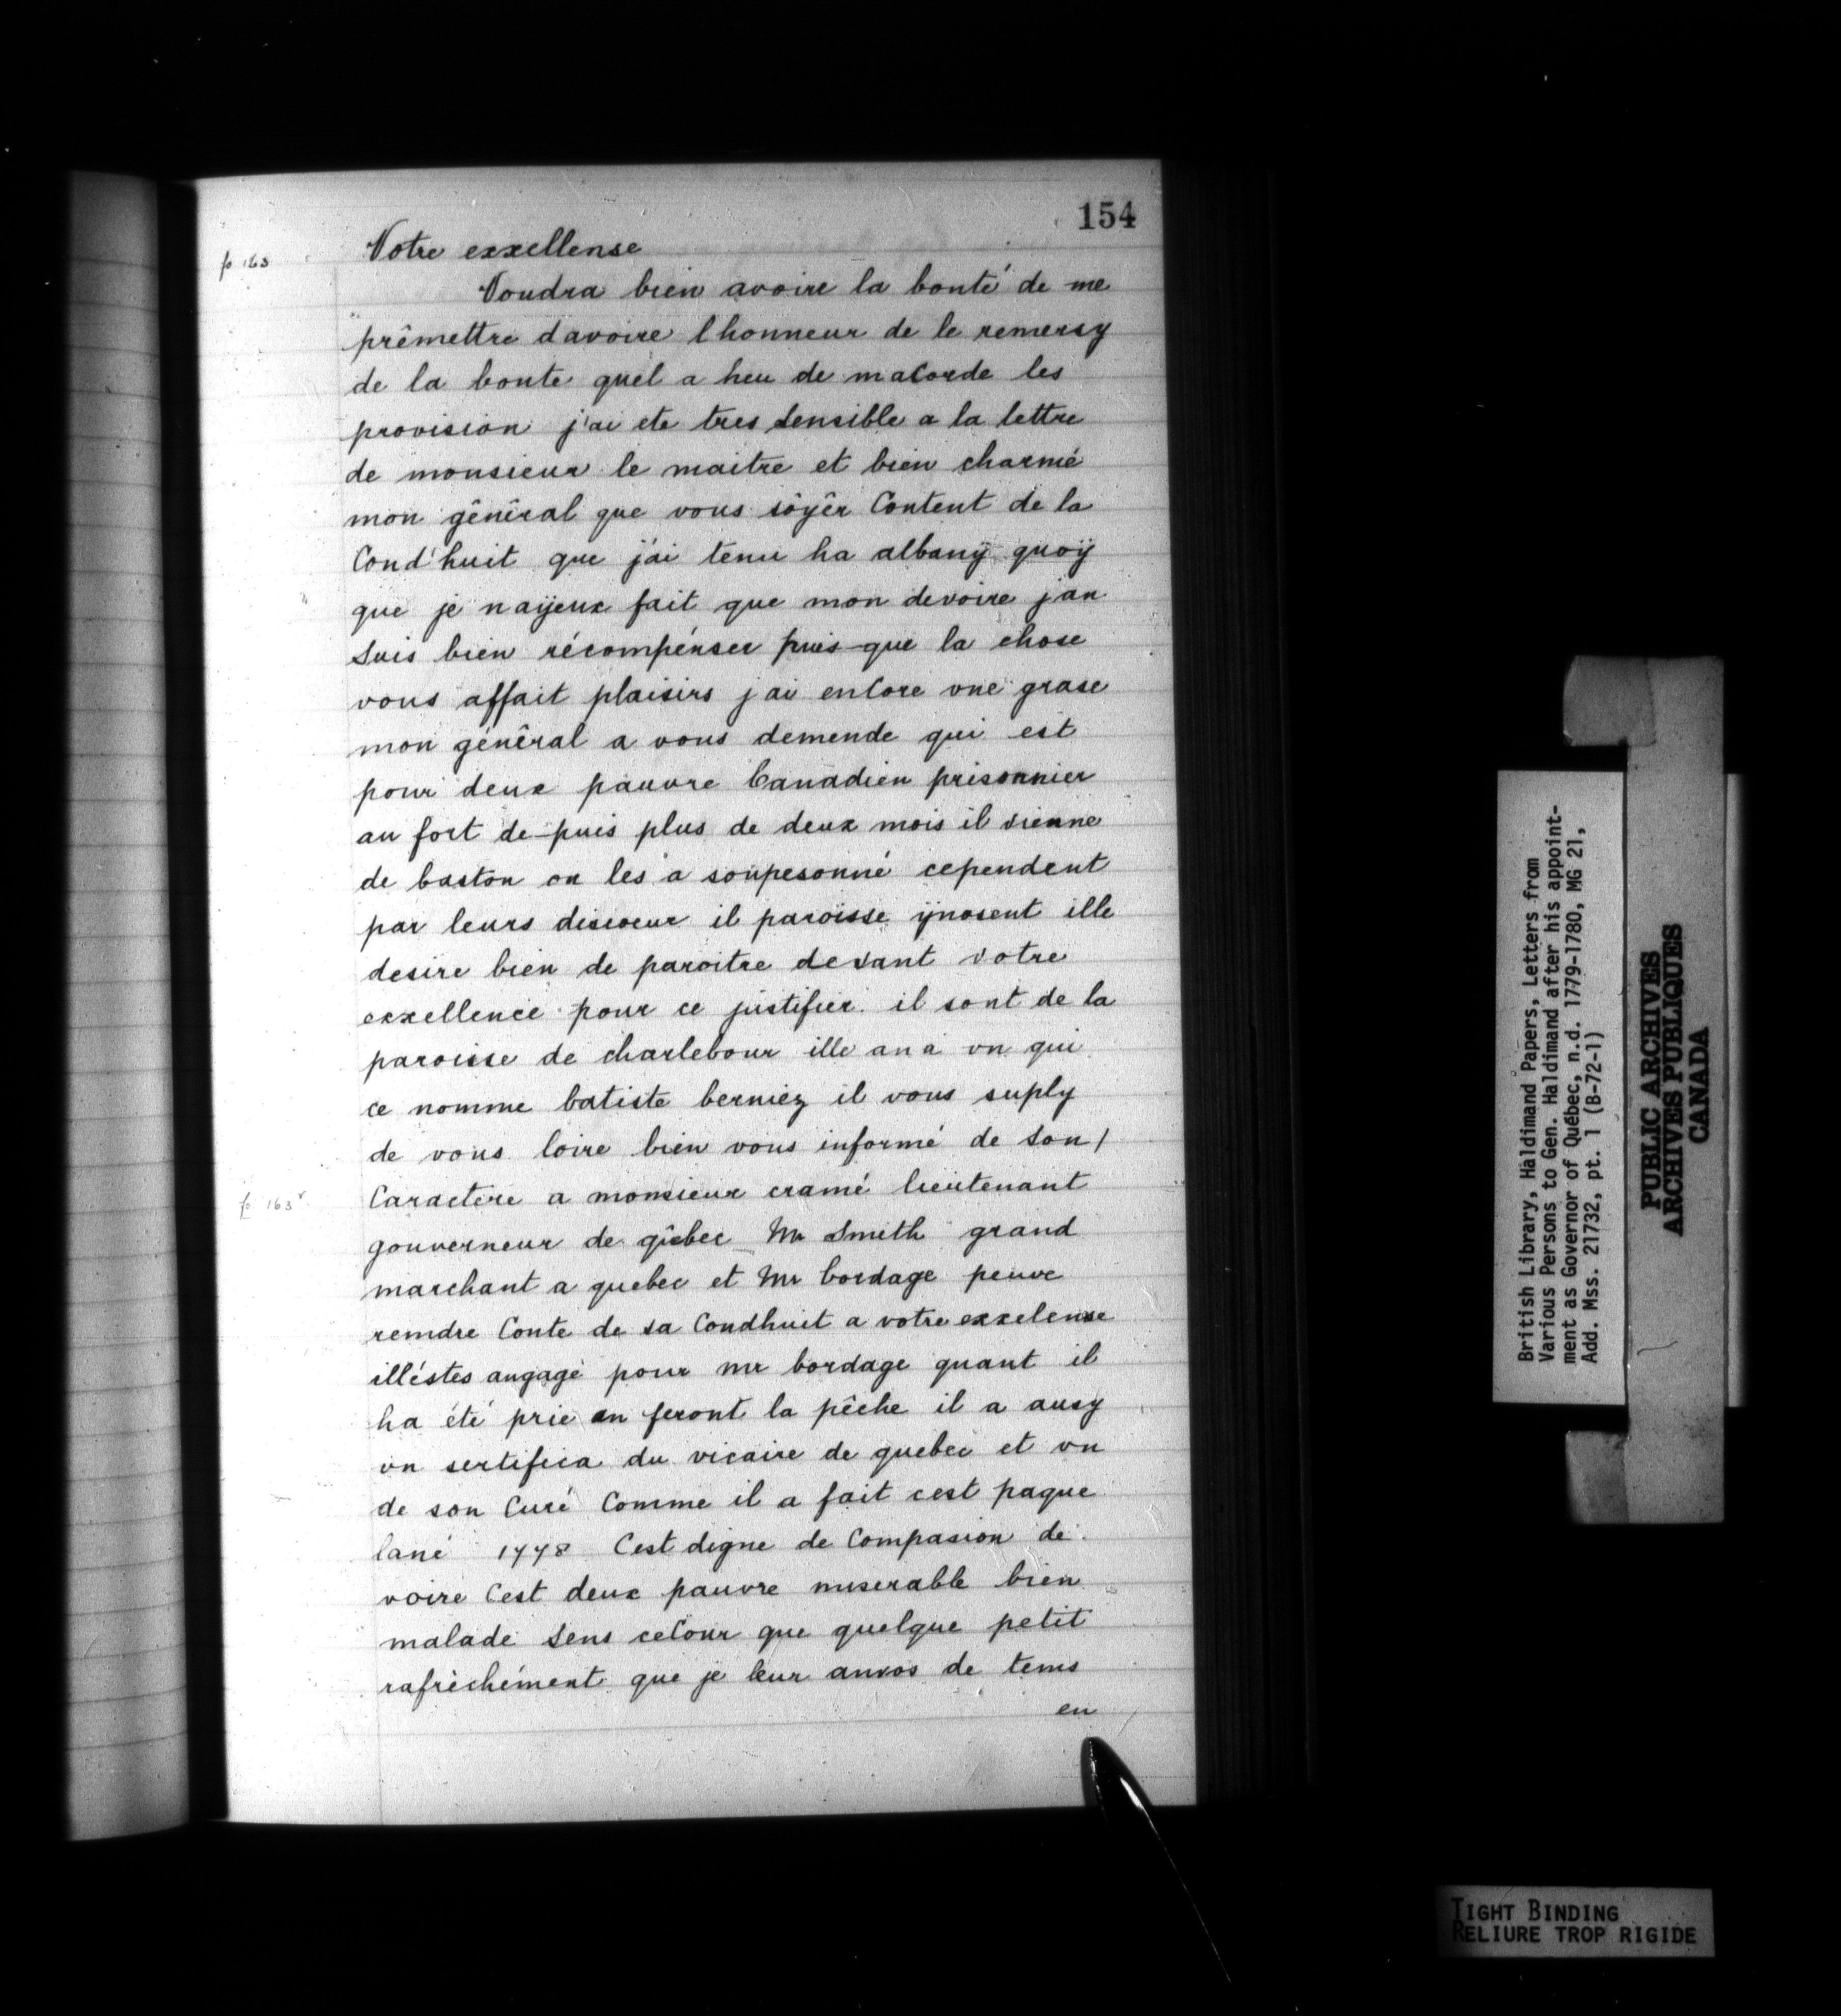 154
fo 163
Votre exxellense
Voudra bien avoire la bonté de me
prêmettre davoire lhonneur de le remersy
de la bonte quel a heu de macorde les
provision j'ai ete tres sensible a la lettre
de monsieur le maitre et bien charmé
mon gênêral que vous sôyêr Content de la
Cond'huit que j'ai tenu ha albanÿ quoÿ
que je naÿeux fait que mon devoire jan
suis bien récompénser puis-que la chose
vous affait plaisirs jai encore vne grase
mon génêral a vous demende qui est
pour deux pauvre Canadien prisonnier
au fort de-puis plus de deux mois il vienne
de baston on les a soupesonné cependent
par leurs disscour il paroisse ÿnosent ille
desire bien de paroitre devant votre
exxellence pour ce justifier il sont de la
paroisse de charlebour ille an a vn qui
ce nomme batiste berniez il vous suply
de vous loire bien vous informé de son /
fo 163v
Caractere a monsieur cramé lieutenant
gouverneur de qûebec Mr Smith grand
marchant a quebec et Mr bordage peuve
remdre Conte de sa Condhuit a votre exxelense
illéstes angagé pour mr bordage quant il
ha été prie an feront la pêche il a ausy
vn sertifica du vicaire de quebec et vn
de son Curé Comme il a fait cest paque
lané 1778 Cest digne de Compasion de
voire Cest deux pauvre miserable bien
malade sens cecour que quelque petit
rafrèchément que je leur anvos de tems
en
British Library, Haldimand Papers, Letters from
Various Persons to Gen. Haldimand after his appoint-
ment as Governor of Québec, n.d. 1779-1780, MG 21,
Add. Mss. 21732, pt. 1 (B-72-1)
PUBLIC ARCHIVES
ARCHIVES PUBLIQUES
CANADA
TIGHT BINDING
RELIURE TROP RIGIDE